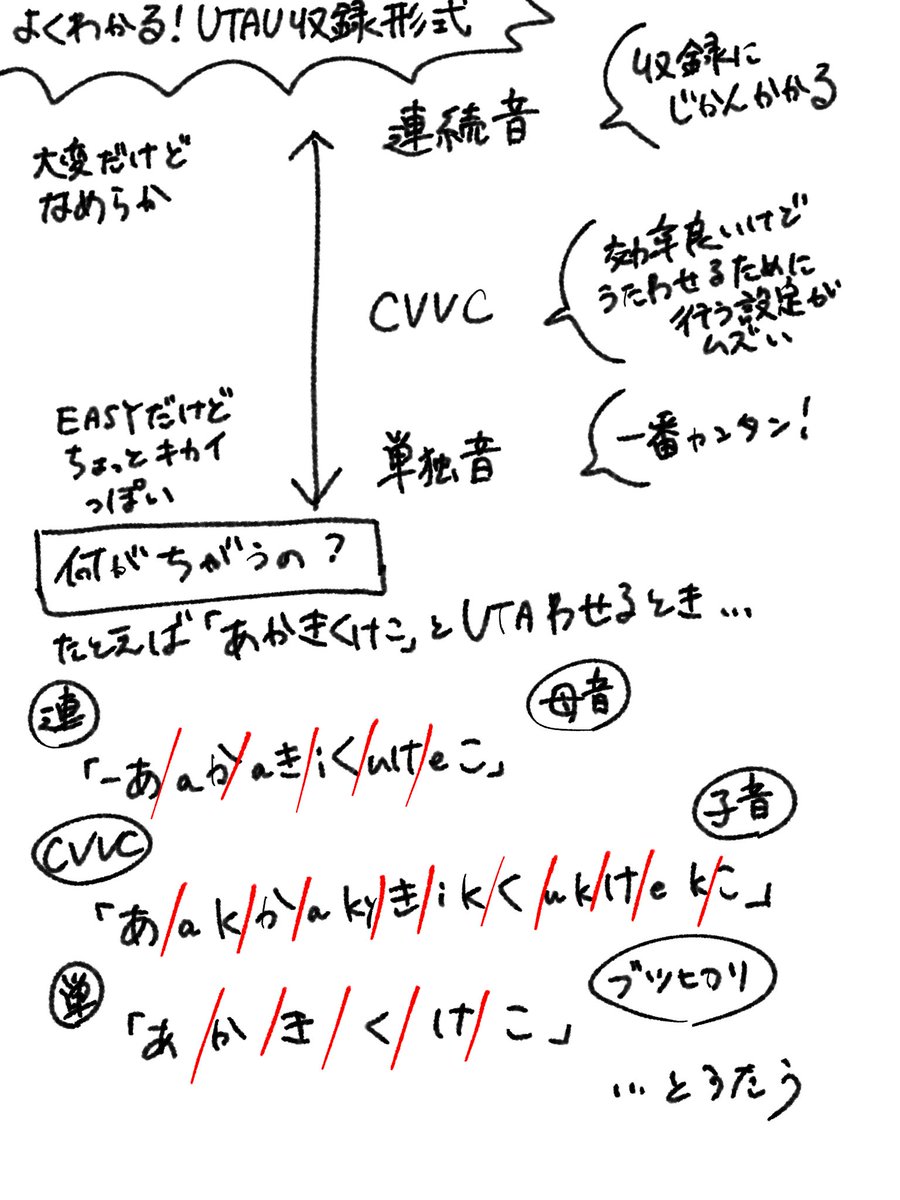 よくわかる!UTAU収録形式
連続音
収録に
じかんかかる
大変だけど
なめらか
CVVC
効率良いけど
うたわせるために
行う設定が
ムズい
EASYだけど
ちょっとキカイ
っぽい
単独音
一番カンタン!
何がちがうの?
たとえば「あかきくけこ」とUTAわせるとき…
連
母音
「-あ/aか/aき/iく/uけ/eこ」
CVVC
子音
「あ/a k/か/a ky/き/i k/く/u k/け/e k/こ」
単
ブツ切り
「あ/か/き/く/け/こ」
…とうたう